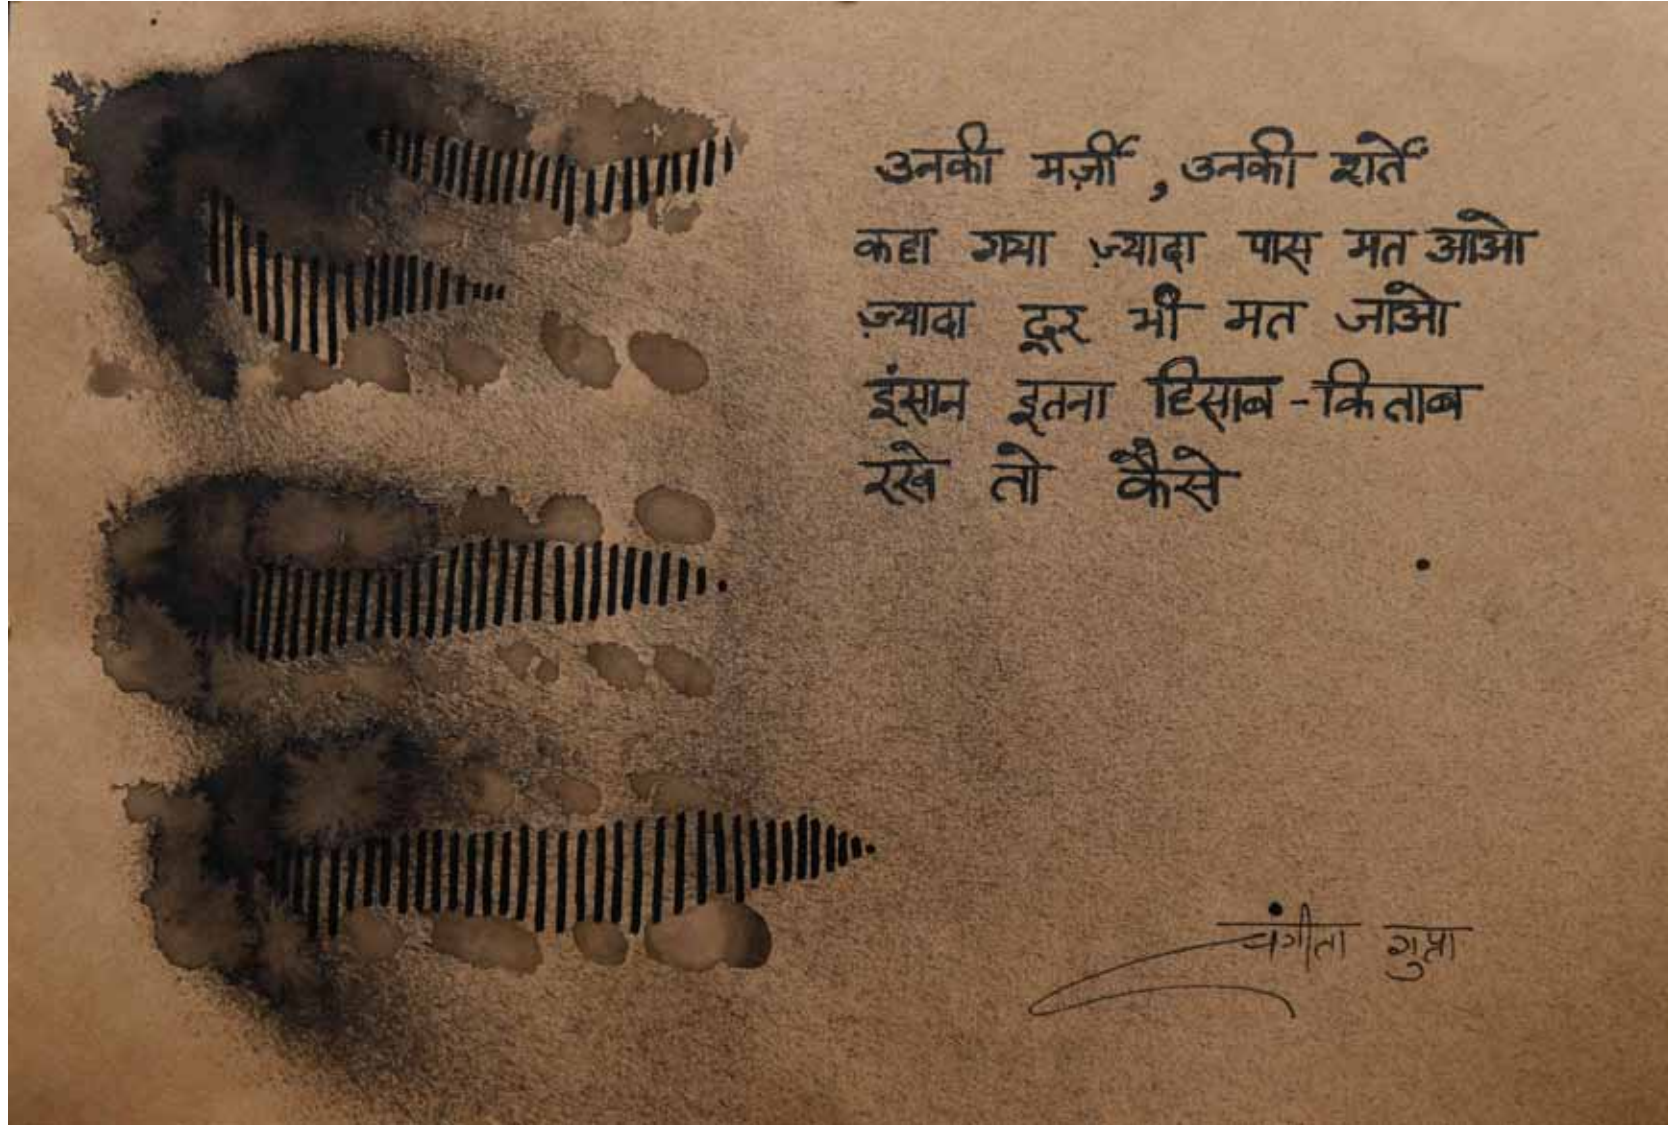 उनकी मर्ज़ी, उनकी शर्तें
कहा गया ज़्यादा पास मत आओ
ज़्यादा दूर भी मत जाओ
इंसान इतना हिसाब-किताब
रखे तो कैसे
संगीता गुप्ता